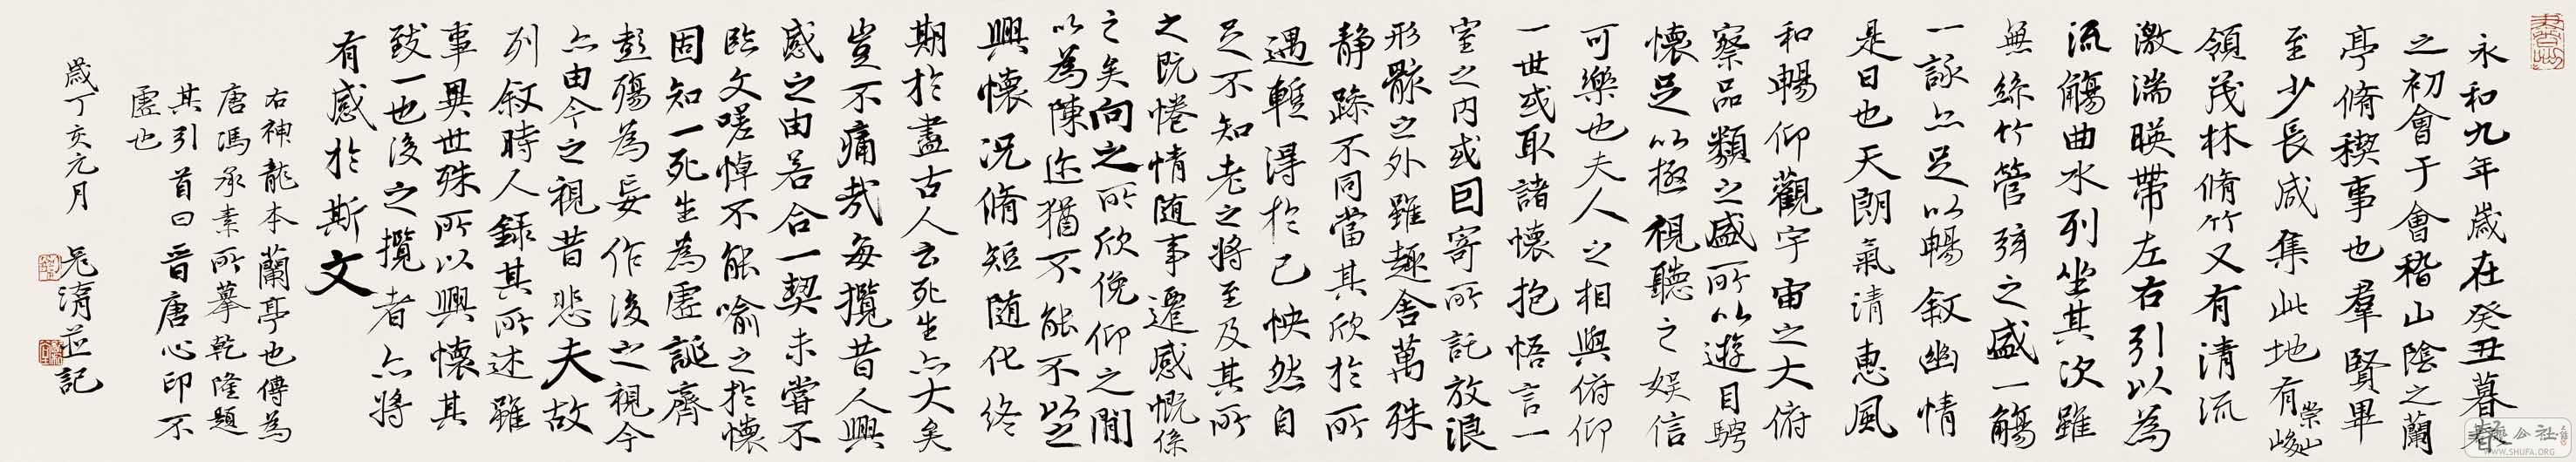 永和九年歲在癸丑暮春
之初會于會稽山陰之蘭
亭脩稧事也羣賢畢
至少長咸集此地有崇山峻
領茂林脩竹又有清流
激湍暎帶左右引以為
流觴曲水列坐其次雖
無絲竹管弦之盛一觴
一詠亦足以暢敘幽情
是日也天朗氣清惠風
和暢仰觀宇宙之大俯
察品類之盛所以遊目騁
懷足以極視聽之娛信
可樂也夫人之相與俯仰
一世或取諸懷抱悟言一
室之內或因寄所託放浪
形骸之外雖趣舍萬殊
靜躁不同當其欣於所
遇暫得於己怏然自
足不知老之將至及其所
之既惓情隨事遷感慨係
之矣向之所欣俛仰之間
以為陳迹猶不能不以之
興懷況脩短隨化終
期於盡古人云死生亦大矣
豈不痛哉每攬昔人興
感之由若合一契未嘗不
臨文嗟悼不能喻之於懷
固知一死生為虛誕齊
彭殤為妄作後之視今
亦由今之視昔悲夫故
列敘時人錄其所述雖
事異世殊所以興懷其
致一也後之攬者亦將
有感於斯文
右神龍本蘭亭也傳為
唐馮承素所摹乾隆題
其引首曰晉唐心印不
虛也
歲丁亥元月 晁清並記
書法公社
WWW.SHUFA.ORG